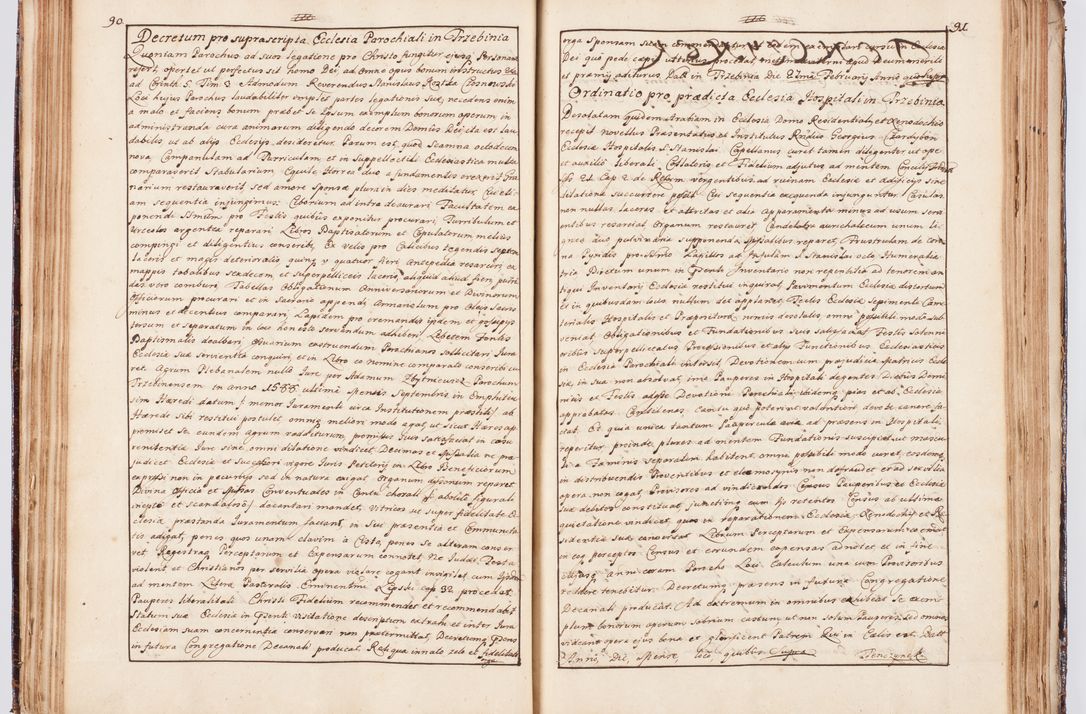 90.
Decretum pro suprascripta Ecclesia Parochiali in Trzebinia
Quoniam Parochus ad suos legatione pro Christo fungitur ejusq Personam
refert, oportet ut perfectus sit homo Dei, ad omne opus bonum instructus
ad Corinth. 5. Tim 3 Admodum Reverendus Stanislaus
Loci hujus Parochus laudabiliter implet partes legationis suæ, necdens enim
a malo et faciens bonum præbet se Ipsum exemplum bonorum operum, in
administranda cura animarum diligendo decorem Domus Dei, ita est lau
dabilis ut ab alijs Ecclesijs desideretur. Parum est, quod Scamna octodecim
nova, Campanulam ad Turriculam et in suppellectili Ecclesiastica multa
comparaverit Stabularium Equile Horrea duo a fundamentis erexerit Gra
narium restauraverit, sed amore Sponsæ plura in dies meditatur, Cui eti
am sequentia injungimus: Ciborium ad intra deaurari Facultatem ex
ponendi pro Festis quibus exponitur procurari, Turribulum et
Urceolos argentea reparari Libros Baptisatorum et Copulatorum melius
compingi et diligentius conscribi, Ex velis pro Calicibus tegendis septem
laceris et magis deterioratis quinq vel quatuor fieri Antepedia resarciri, ex
mappis tobalibus sexdecem et superpelliceis laceris aliquid aliud fieri, putri
das vero comburi, Tabellas Obligationum Anniversariorum et Divinorum
Officiorum procurari et in Sacrario appendi Armariolum pro Oleis Sacris
minus et decentius comparari Lapidem pro cremandis ijsdem et gossipijs
tersum et separatum in loco honesto servandum adhiberi, Lebetem Fontis
Baptismalis dealbari Ossuarium exstruendum Parochianos sollicitari Jura
Ecclesiæ suæ servientia conquiri, et in Libro eo nomine comparato conscribi cu
ret. Agrum Plebanalem nullo Jure per Adamum Parochum
Trzebinensem in anno 1588 ultima Mensis Septembris in Emphiteu
sim Hæredi datum / memor Juramenti circa Institutionem præstiti / ab
Hærede sibi restitui postulet omniq meliori modo agat, ut sicut Hæres ap
promisit se eundem agrum redditurum, promissis suis satisfaciat in casu
renitentiæ Jure sine omni dilatione vindicet Decimas et Missalia ne præ
judicet Ecclesiæ et Successori vigore Juris Petelinij in Libro Beneficiorum
expressi non in pecunijs sed in natura exigat, Organum disonum reparet
Divina Officia et Missas Conventuales in Cantu chorali / abolito figurali
inepto et scandaloso / decantari mandet, Vitricos ut super fidelitate Ec
clesiæ præstanda Juramentum faciant, in sui præsentia et Communita
tis adigat, penes quos unam clavim à Cista, penes se alteram conser
vet Regestraq Perceptarum et Expensarum connotet. Ne Judæi Festa
violent et Christianos per servilia opera violare cogant invigilet, cum
ad mentem Litteræ Pastoralis Eminentissimi Lipski cap. 32. procedat.
Pauperes liberalitati Christi Fidelium recommendet et recommendabit
Statum suæ Ecclesiæ in Visitatione descriptum extrahi et inter Jura
Ecclesiam suam concernentia conservari non prætermittat, Decretumq
in futura Congregatione Decanali producat. Reliqua in nato zelo et fidelitate
erga

91.
erga Sponsam suam
Dei quo pede cæpit
et præmij additurus Datt in Trzebinia Die Februarij Anno quo supra
Ordinatio pro prædicta Ecclesia Hospitali in Trzebinia
Desolatam quidem Arabiam in Ecclesia Domo Residentiali, et Xenodochio
recepit novellus Præsentatus et Institutus Rndus Georgius
Ecclesiæ Hospitalis S. Stanislai Capellanus curet tamen diligenter ut ope
et auxilio liberali Collatoris et Fidelium adjutus ad mentem Concilij
21 Cap 7 de Reform. vergentibus ad ruinam Ecclesiæ et ædificijs sine
dilatione succurrere possit. Cui sequentia exequenda injunguntur, Casulas
non nullas laceras et attritas et alia apparamenta minus ad usum servi
entibus resarciat, Organum restauret, Candelabra aurichalcea unum li
gneo duo pulvinaria supponenda Missalibus reparet, frustulum de coro
na Pyxidis proximo Lapillos ad Infulam S. Stanislai octo, Humeralia
tria Pictum unum in Inventario non reperibilia ad tenorem an
tiqui Inventarij Ecclesiæ restitui inquirat, Pavimentum Ecclesiæ distortum
et in quibusdam locis nullum det applanet, Tectis Ecclesiæ sepimentis Cæme
terialis Hospitalis et Propriniturá nimis desolatis, omni possibili modo sub
veniat, Obligationibus et Fundationibus suis satisfaciat Festis solenni
oribus superpelliceatus Processionibus et alijs functionibus Ecclesiasticis
in Ecclesia Parochiali intersit, Devotionem cum præjudicio Matricis Eccle
siæ, in sua non absolvat, imo Pauperes in Hospitali degentes Diebus Domi
nicis et Festis adesse Devotioni Parochiali, ibidemq pias et ab Ecclesia
approbatas Cantilenas, cantu quo poterint valentiori devote canere fa
ciat. Et quia unica tantum Paupercula avia ad præsens in Hospitali,
reperitur proinde plures ad mentem Fundationis suscipiat ut mascu
li a Faminis separatim habitent omni possibili modo curet, eosdemq
in distribuendis Proventibus et eleemosynis non defraudet et ad servilia
opera non cogat, Provisores ad vindicandos Census Pauperibus et Ecclesiæ
suæ debitos constituat, junctimq cum ijs retentos Census ab ultima
quietatione vindicet, quos in reparationem Ecclesiæ, Xenodochij et Re
sidentiæ suæ convertat Librum Perceptarum et Expensarum conficiat
in eoq percepti Census et eorundem expensas adnotet et in fine
cujusq anni coram Parocho Loci Calculum una cum Provisoribus
reddere tenebitur. Decretumq præsens in futura Congregatione
Decanali producat. Ad extremum in omnibus exhibeat se exem
plum bonorum operum sobrium castum, ut non solum Pauperes sed omnes
videant opera ejus bona et glorificent Patrem qui in Cælis est. Datt
Anno, Die, Mense, loco quibus Supra